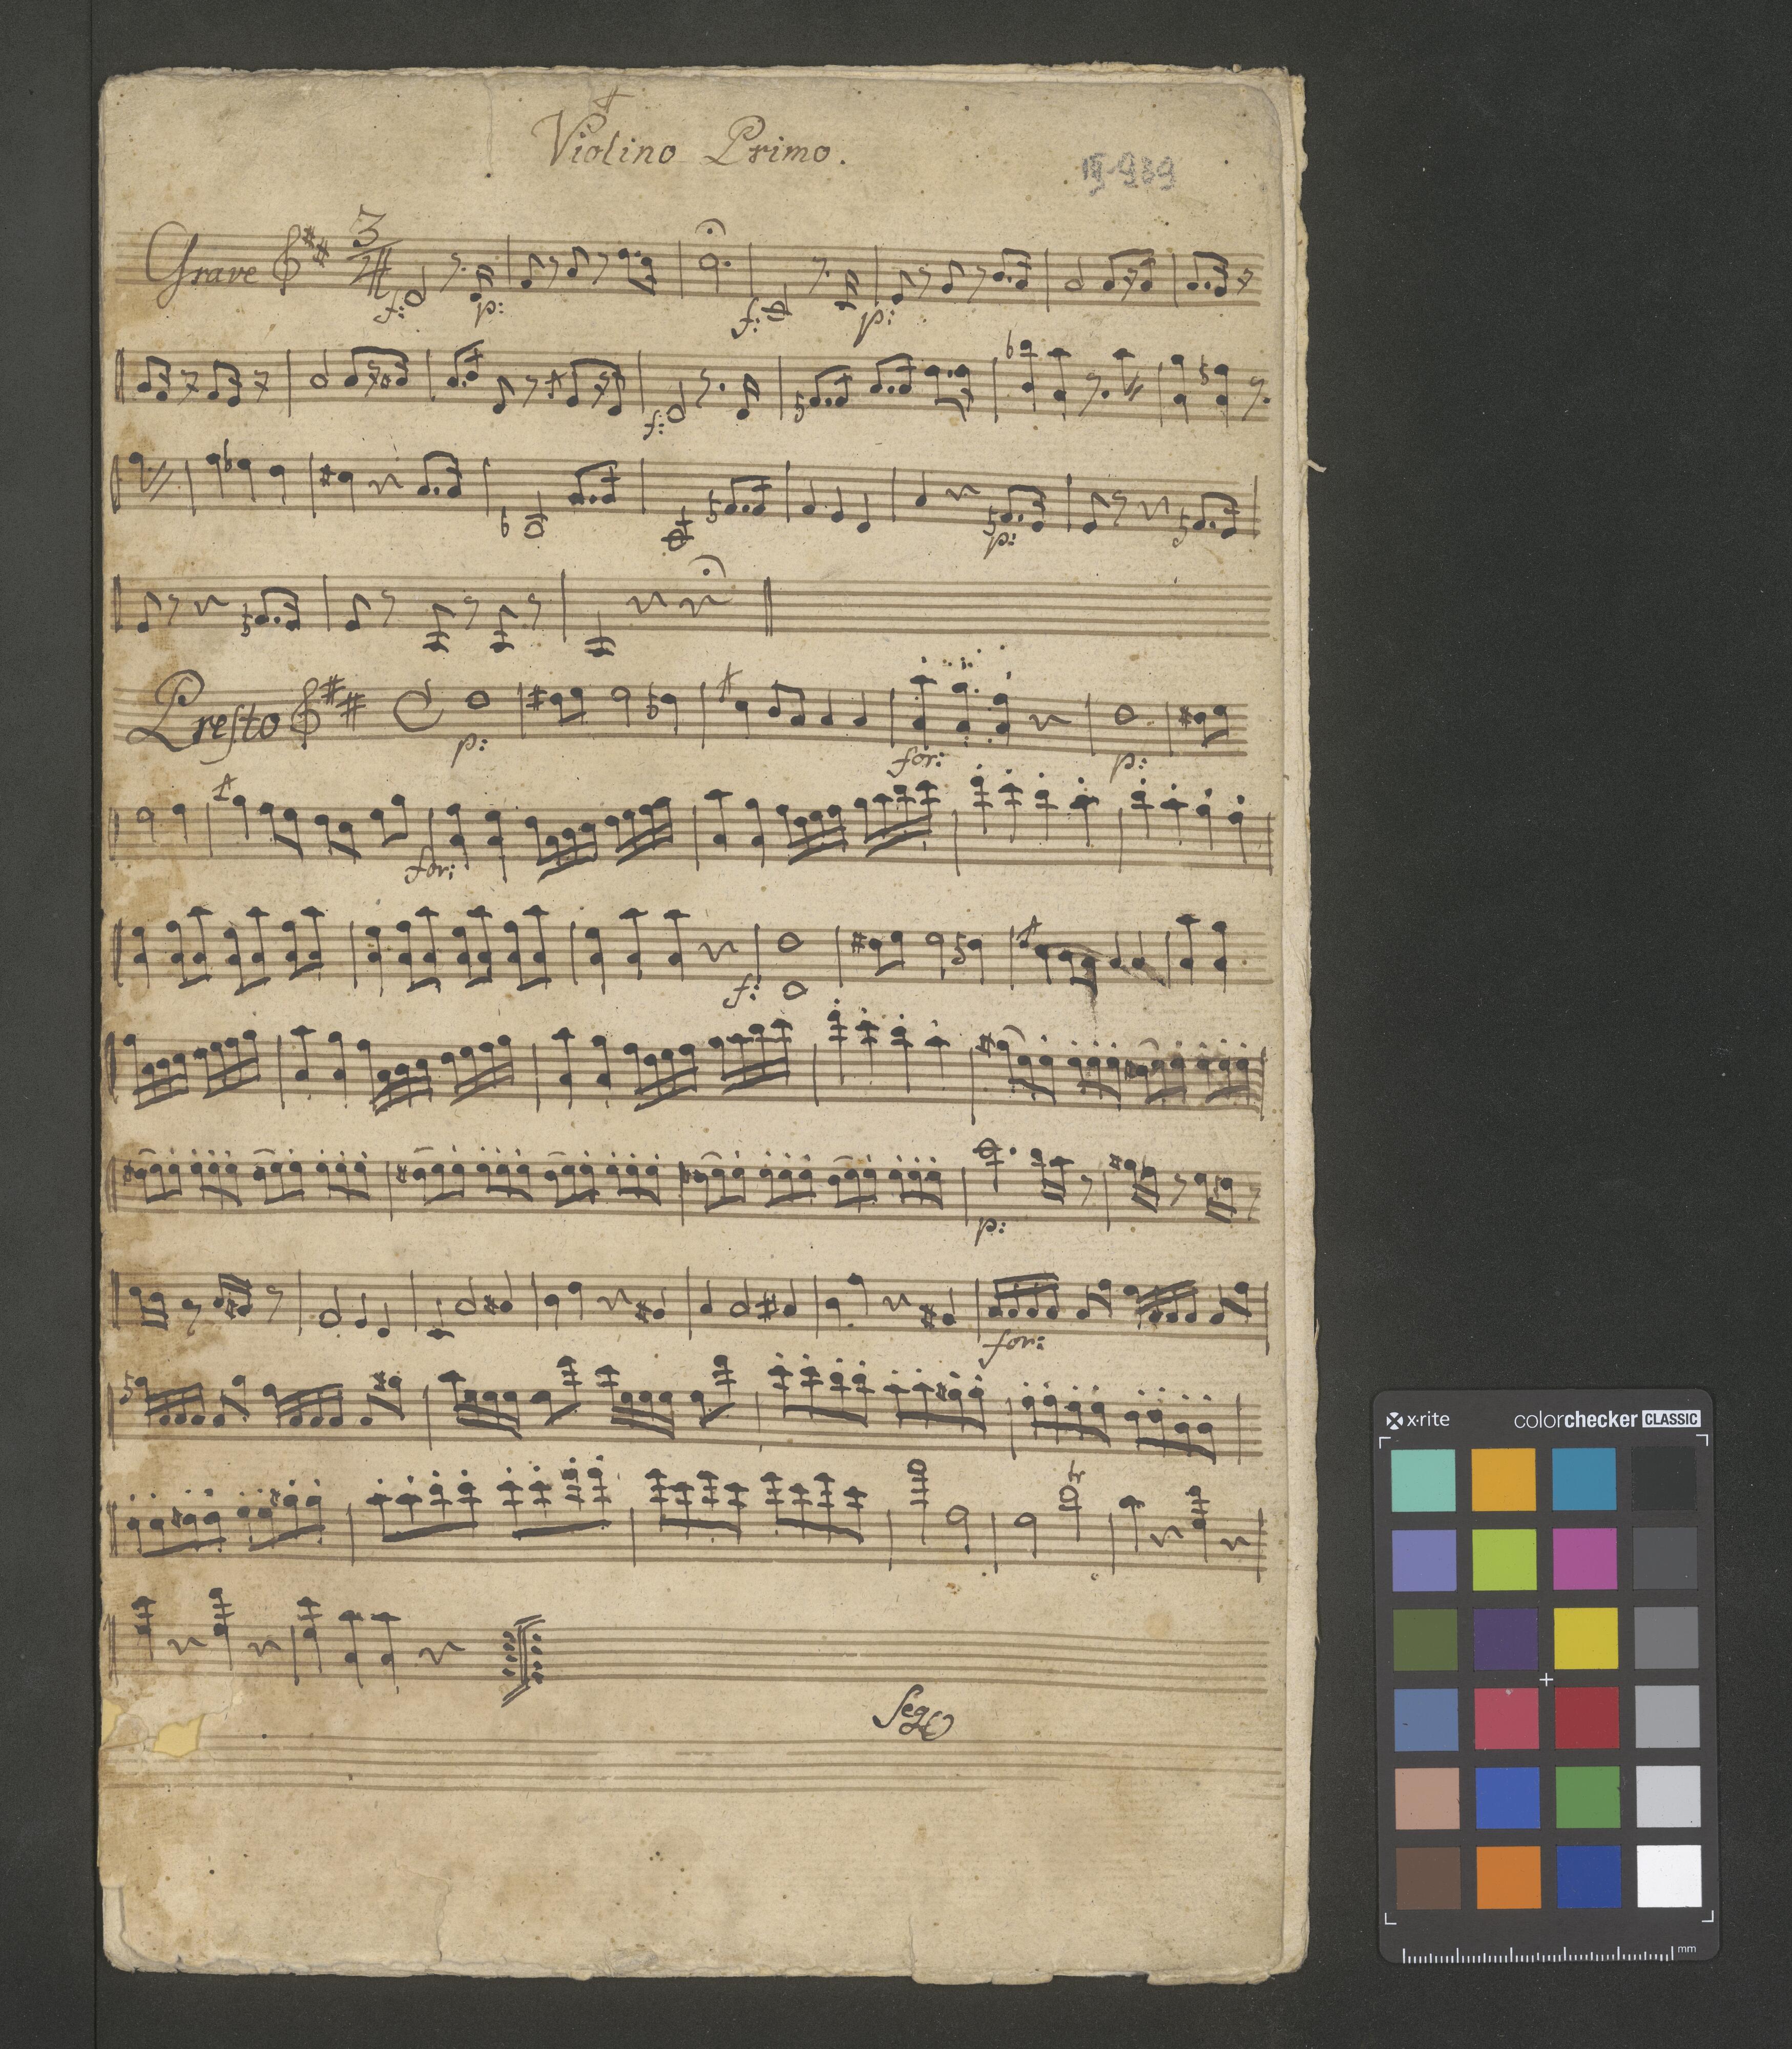 Violino Primo.
Grave 3/4
f: p: f: p:
f:
p:
Presto
p: for: p:
for:
f:
p:
for:
tr
x·rite colorchecker CLASSIC
mm